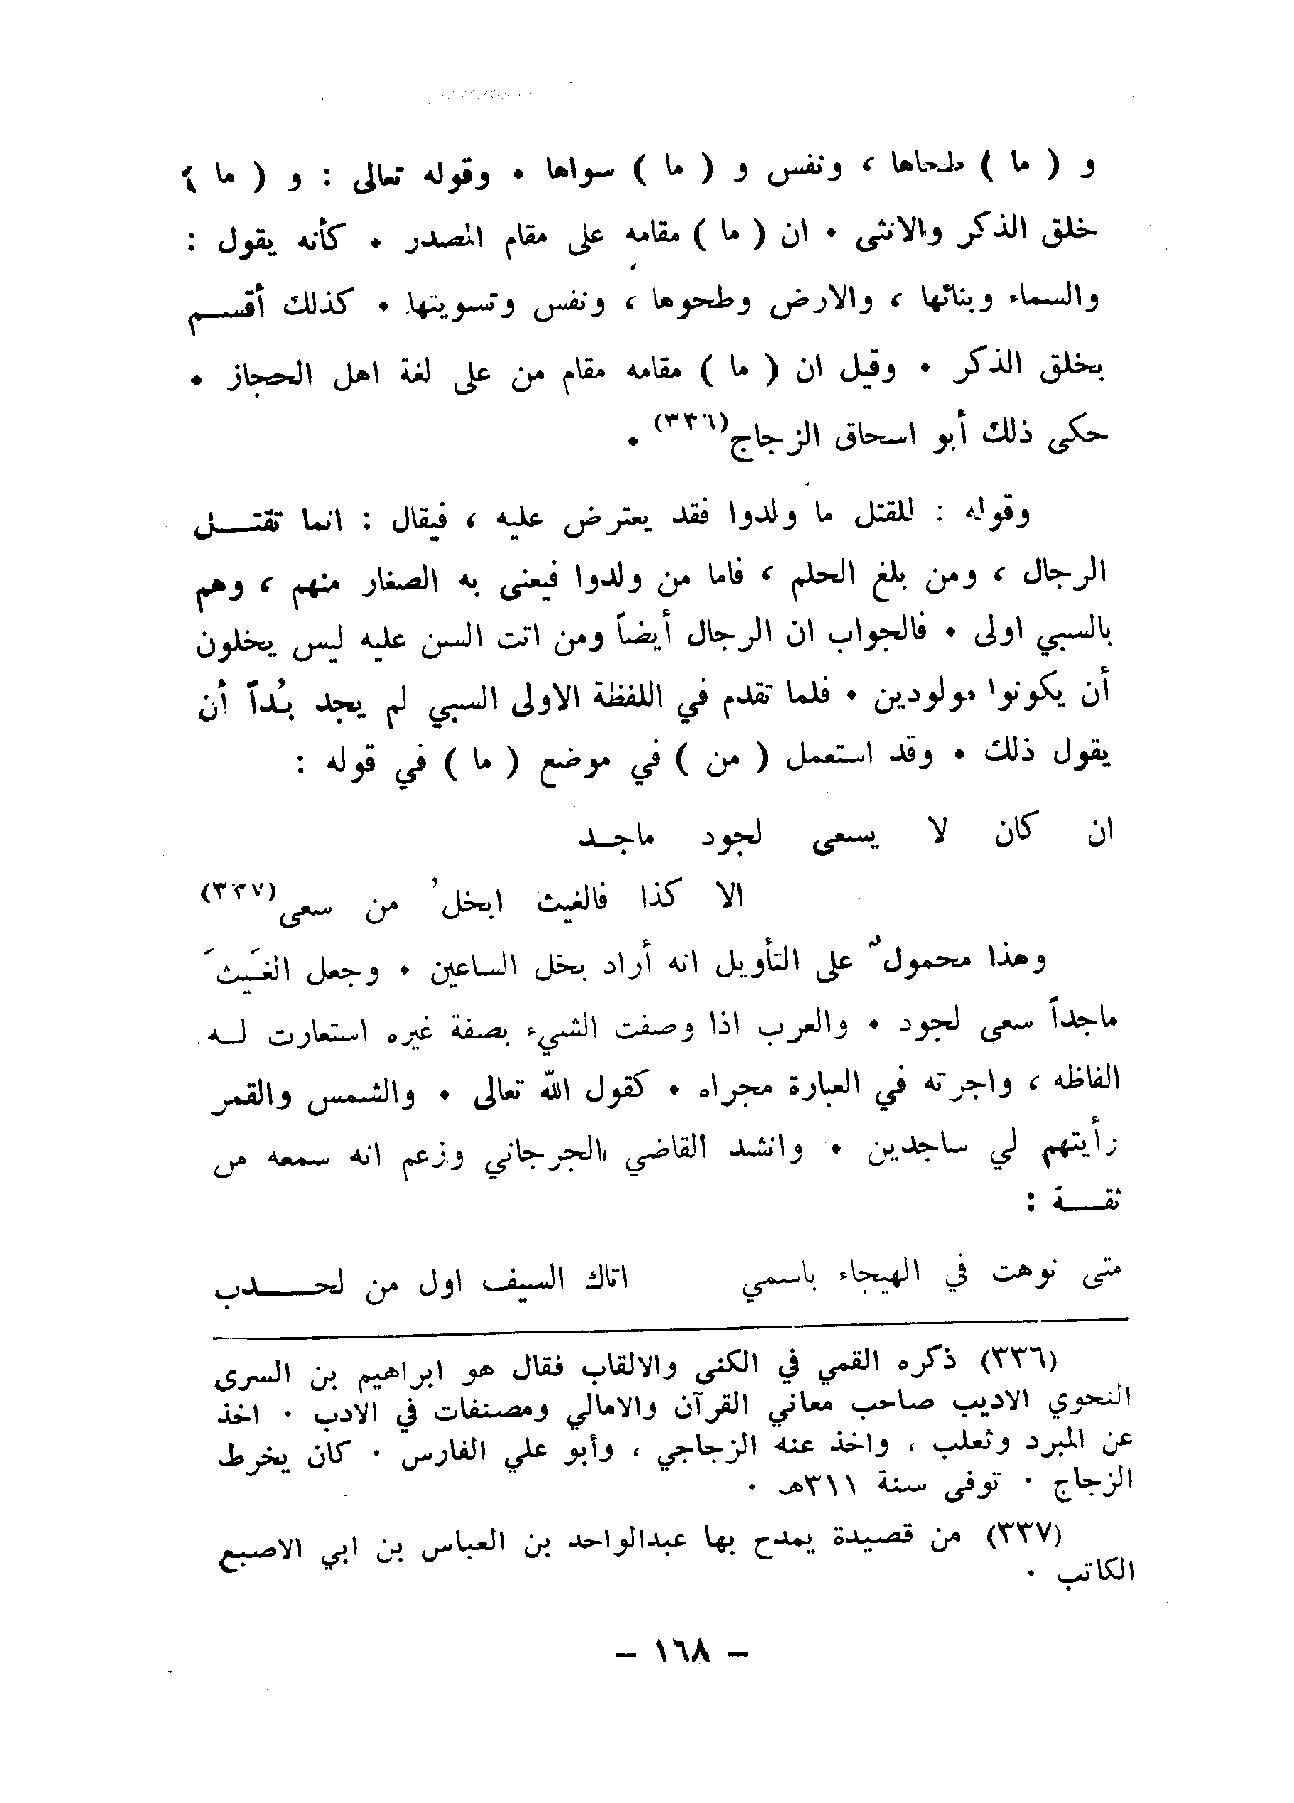 و ( ما ) طحاها ، ونفس و ( ما ) سواها • وقوله تعالى : و ( ما )
خلق الذكر والانثى • ان ( ما ) مقامه على مقام المصدر • كأنه يقول :
والسماء وبنائها ، والارض وطحوها ، ونفس وتسويتها • كذلك أقســم
بخلق الذكر • وقيل ان ( ما ) مقامه مقام من على لغة اهل الحجاز •
حكى ذلك أبو اسحاق الزجاج(٣٣٦) •
وقوله : للقتل ما ولدوا فقد يعترض عليه ، فيقال : انما تقتــل
الرجال ، ومن بلغ الحلم ، فاما من ولدوا فيعنى به الصغار منهم ، وهم
بالسبي اولى • فالجواب ان الرجال أيضاً ومن اتت السن عليه ليس يخلون
أن يكونوا مولودين • فلما تقدم في اللفظة الاولى السبي لم يجد بُداً أن
يقول ذلك • وقد استعمل ( من ) في موضع ( ما ) في قوله :
ان كان لا يسعى لجود ماجـد
الا كذا فالغيث ابخلُ من سعى(٣٣٧)
وهذا محمولٌ على التأويل انه أراد بخل الساعين • وجعل الغَيثَ
ماجداً سعى لجود • والعرب اذا وصفت الشيء بصفة غيره استعارت لــه
الفاظه ، واجرته في العبارة مجراه • كقول الله تعالى • والشمس والقمر
رأيتهم لي ساجدين • وانشد القاضي الجرجاني وزعم انه سمعه من
ثقــة :
متى نوهت في الهيجاء باسمي اتاك السيف اول من لحـــدب
(٣٣٦) ذكره القمي في الكنى والالقاب فقال هو ابراهيم بن السرى
النحوي الاديب صاحب معاني القرآن والامالي ومصنفات في الادب • اخذ
عن المبرد وثعلب ، واخذ عنه الزجاجي ، وأبو علي الفارس • كان يخرط
الزجاج • توفى سنة ٣١١هـ •
(٣٣٧) من قصيدة يمدح بها عبدالواحد بن العباس بن ابي الاصبع
الكاتب •
– ١٦٨ –